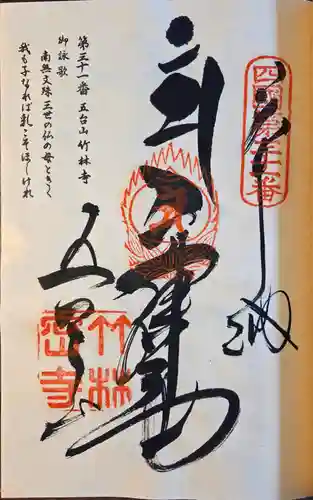 奉納
四國第三十一番
文殊大士
五台山
竹林
密寺
第三十一番 五台山 竹林寺
御詠歌
南無文殊三世の仏の母ときく
我も子なれば乳こそほしけれ